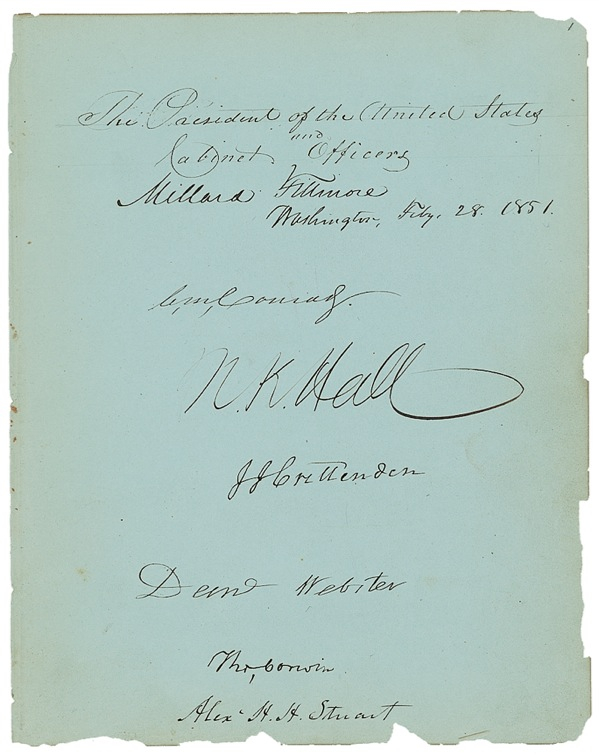 1
The President of the United States
and
Cabinet Officers
Millard Fillmore
Washington, Feby. 28. 1851.
C, M, Conrad.
N. K. Hall
J J Crittenden
Danl Webster
Tho, Corwin
Alexr H. H. Stuart